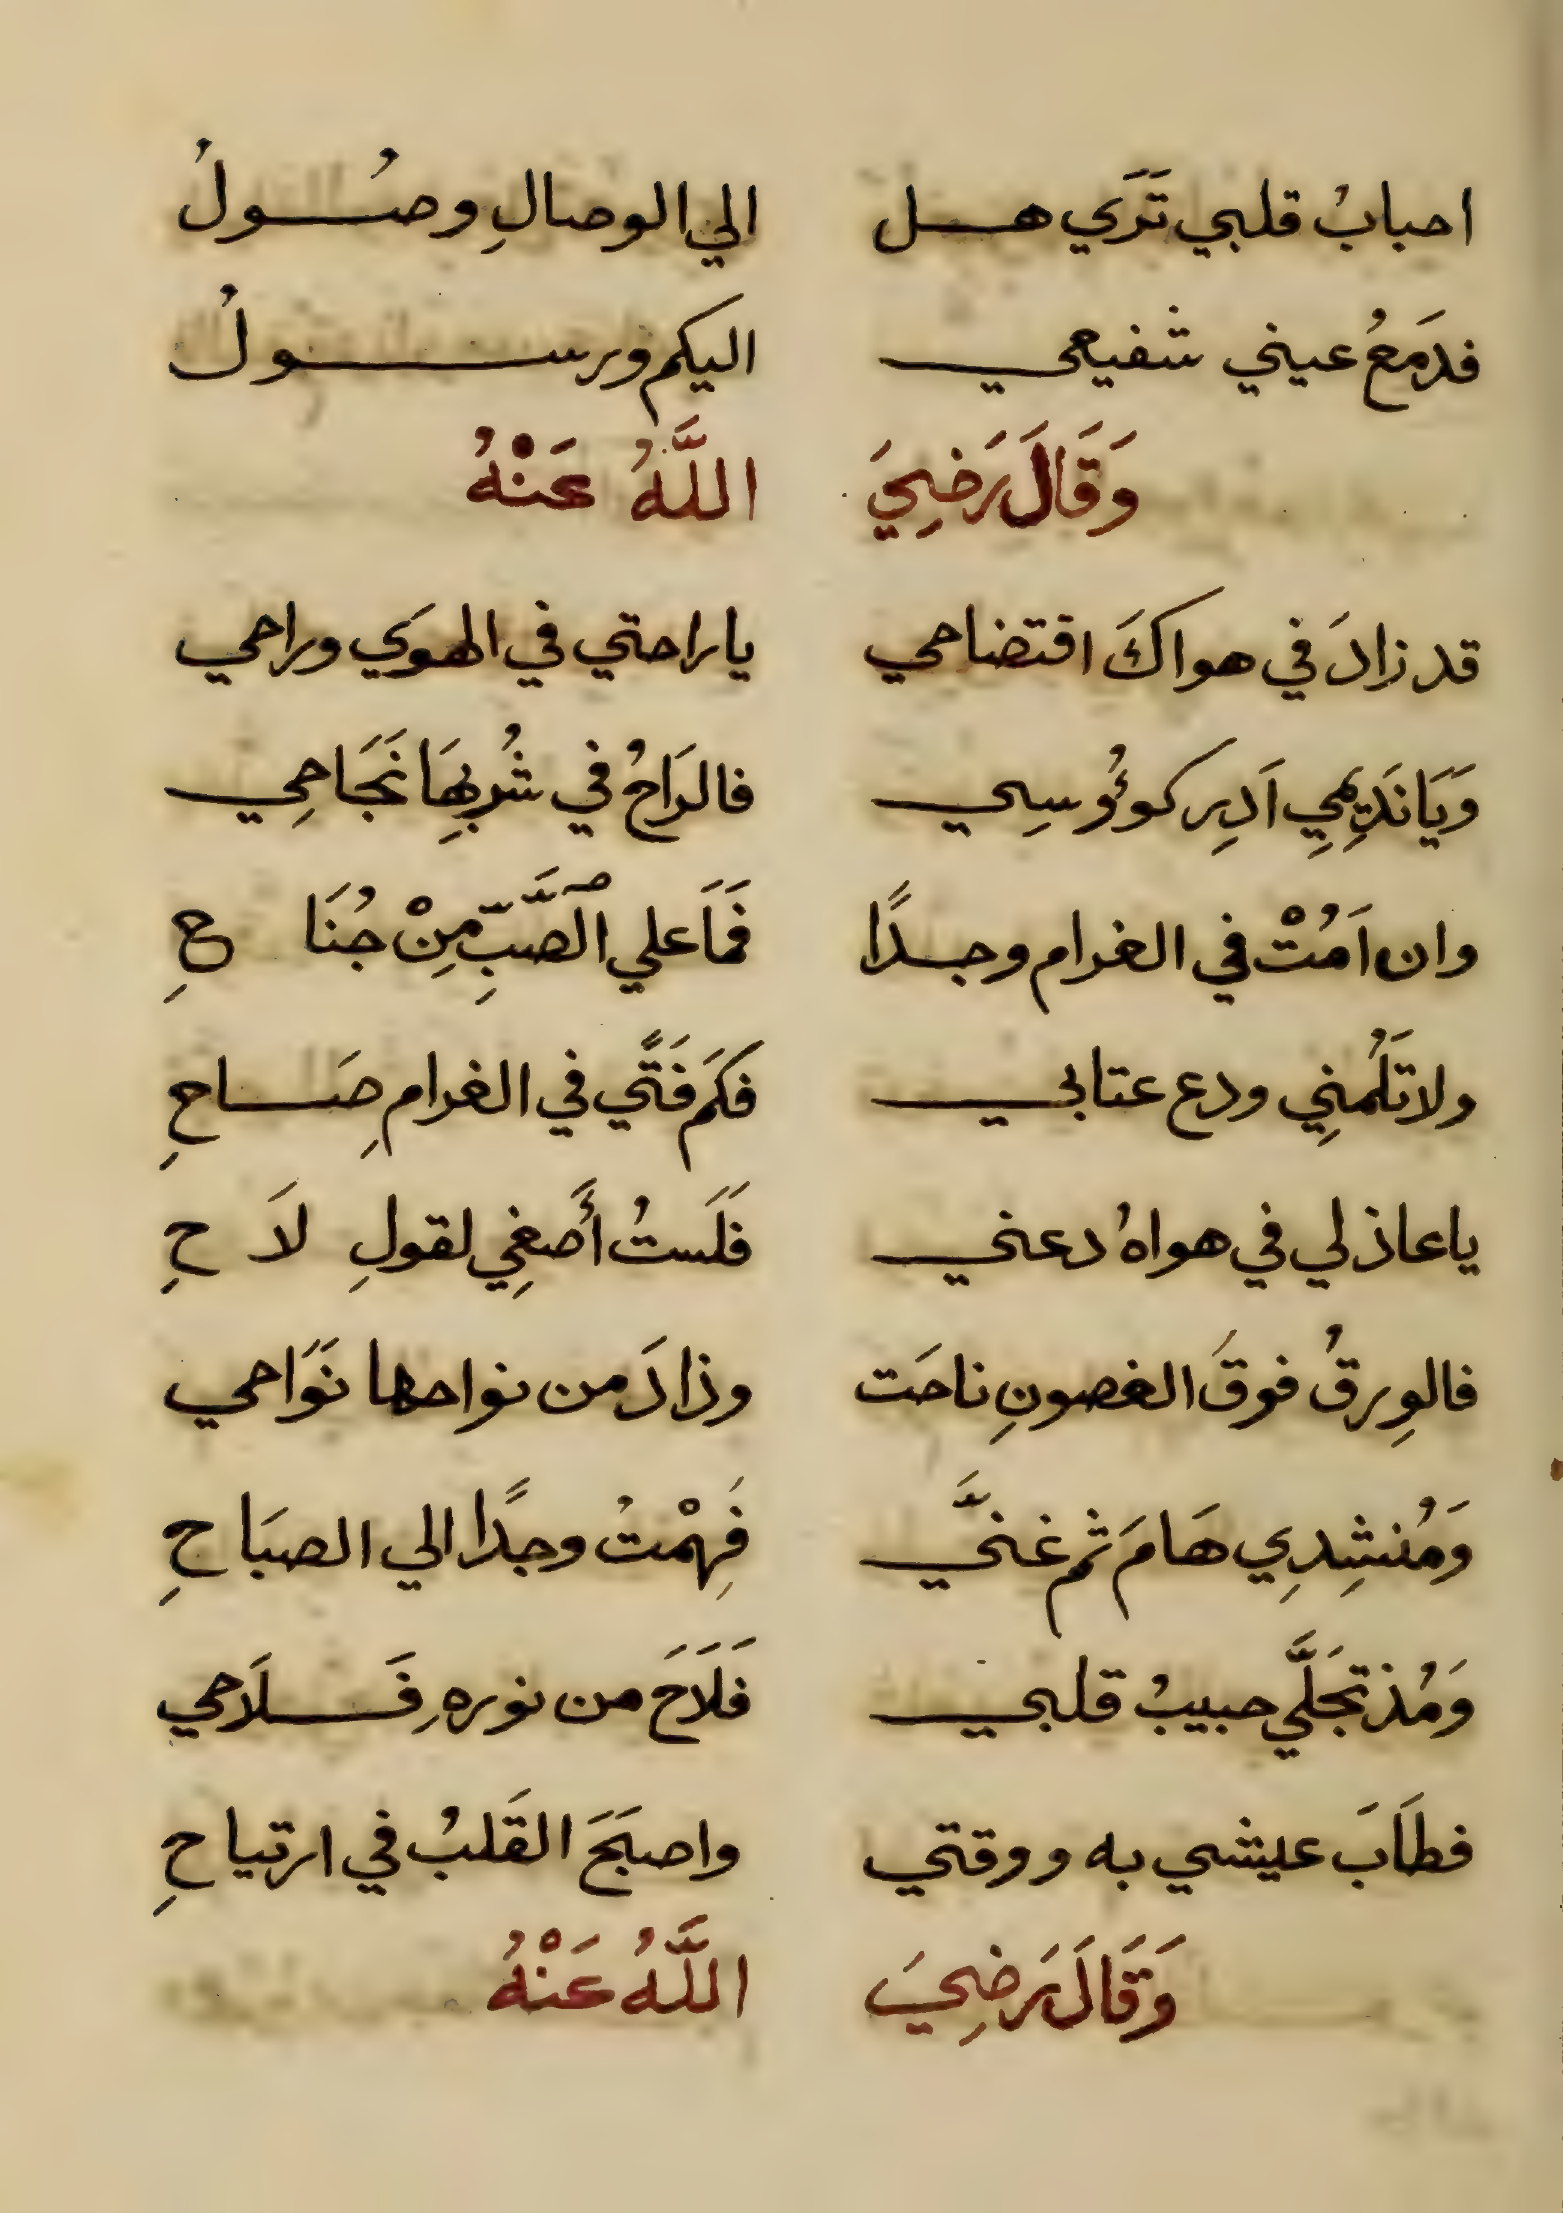 احبابُ قلبي تَرَي هل الي الوصالِ وصُولُ
فدَمعُ عيني شفيعي اليكم ورسولُ
وَقَالَ رَضِيَ اللَّهُ عَنْهُ
قد زادَ في هواكَ افتضاحي ياراحتي في الهوَي وراحي
وَيَانَدِيمِي اَدِر كوؤُوسِي فالرَاحُ في شُربِهَا نَجَاحِي
وان اَمُتْ في الغرام وجدًا فَمَا علي الصَّبِّ مِنْ جُنَاحِ
ولا تَلُمنِي ودع عتابي فكَم فَتًي في الغرام صِاحِ
ياعاذلي في هواهُ دعني فَلَستُ أَصغِي لقولِ لاَحِ
فالوِرقُ فوقَ الغصونِ ناحَت وزادَ من نواحها نَوَاحي
وَمُنشِدِي هَامَ ثم غنَّي فَهِمْتُ وجدًا الي الصبَاحِ
وَمُذ تجَلَّي حبيبُ قلبي فَلَاحَ من نورهِ فَلَاحي
فطَابَ عيشي به ووقتي واصبَحَ القَلبُ في ارتياحِ
وَقَالَ رَضِيَ اللَّهُ عَنْهُ